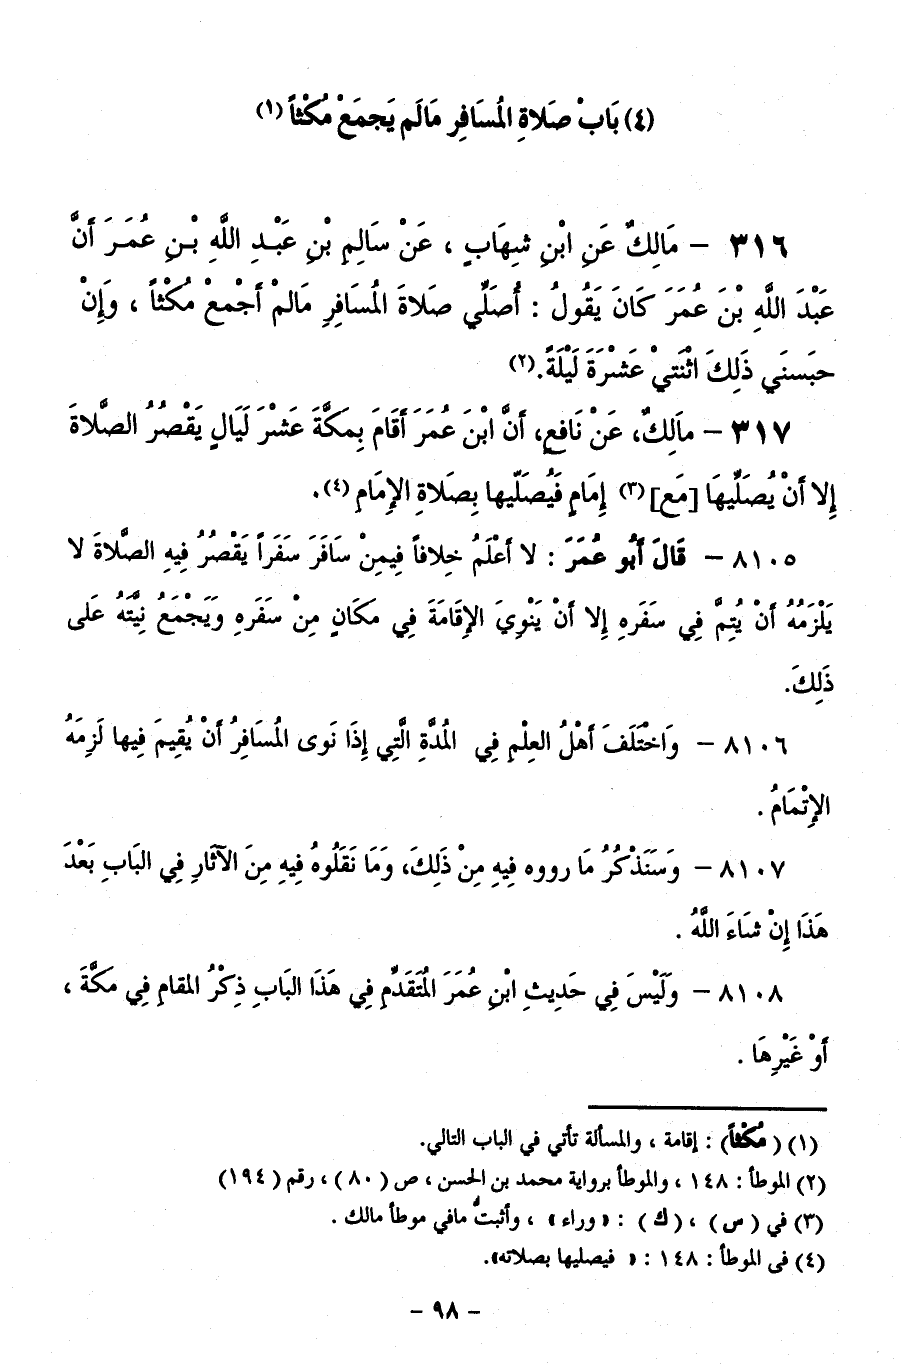 (٤) بَابْ صَلَاةِ الْمُسَافِرِ مَالَم يَجمَعْ مُكْثاً (١)
٣١٦ – مَالِكٌ عَنِ ابْنِ شِهَابٍ ، عَنْ سَالِمِ بْنِ عَبْدِ اللَّهِ بْنِ عُمَرَ أَنَّ
عَبْدَ اللَّهِ بْنَ عُمَرَ كَانَ يَقُولُ : أُصَلِّي صَلَاةَ الْمُسَافِرِ مَالمْ أَجْمعْ مُكْثاً ، وَإِنْ
حبَسنَي ذَلِكَ اثْنَتيْ عَشْرَةَ لَيْلَةً.(٢)
٣١٧ – مَالِكٌ، عَنْ نَافعٍ، أَنَّ ابْنَ عُمَرَ أَقَامَ بِمَكَّةَ عَشْرَ لَيَالٍ يَقْصُرُ الصَّلَاةَ
إِلا أَنْ يُصَلِّيهَا [مَع] (٣) إِمَامٍ فَيُصَلّيها بِصَلَاةِ الإِمَامِ (٤).
٨١٠٥ – قَالَ أَبُو عُمَرَ : لا أَعْلَمُ خِلافاً فِيمِنْ سَافَرَ سَفَراً يَقْصُرُ فِيهِ الصَّلَاةَ لا
يَلْزَمُهُ أَنْ يُتِمَّ فِي سَفَرَهِ إِلا أَنْ يَنْوِيَ الإِقَامَةَ فِي مَكَانٍ مِنْ سَفَرَهِ وَيَجْمَعُ نِيَّتَهُ عَلَى
ذَلِكَ.
٨١٠٦ – وَاخْتَلَفَ أَهْلُ العِلْمِ فِي الْمُدَّةِ الَّتِي إِذَا نَوى الْمُسَافِرُ أَنْ يُقِيمَ فِيها لَزِمَهُ
الإِتْمَامُ .
٨١٠٧ – وَسَنَذْكُرُ مَا رووه فِيهِ مِنْ ذَلِكَ، وَمَا نَقَلُوهُ فِيهِ مِنَ الآثَارِ فِي البَابِ بَعْدَ
هَذَا إِنْ شَاءَ اللَّهُ .
٨١٠٨ – وَلَيْسَ فِي حَدِيثِ ابْنِ عُمَرَ الْمُتَقَدِّمِ فِي هَذَا البَابِ ذِكْرُ المقامِ فِي مَكَّةَ ،
أَوْ غَيْرِهَا .
(١) (مُكْثاً) : إقامة ، والمسألة تأتي في الباب التالي.
(٢) الموطأ : ١٤٨ ، والموطأ برواية محمد بن الحسن ، ص (٨٠) ، رقم (١٩٤)
(٣) في (س) ، (ك) : « وراء » ، وأثبتُّ مافي موطأ مالك .
(٤) في الموطأ : ١٤٨ : « فيصليها بصلاته».
- ٩٨ -